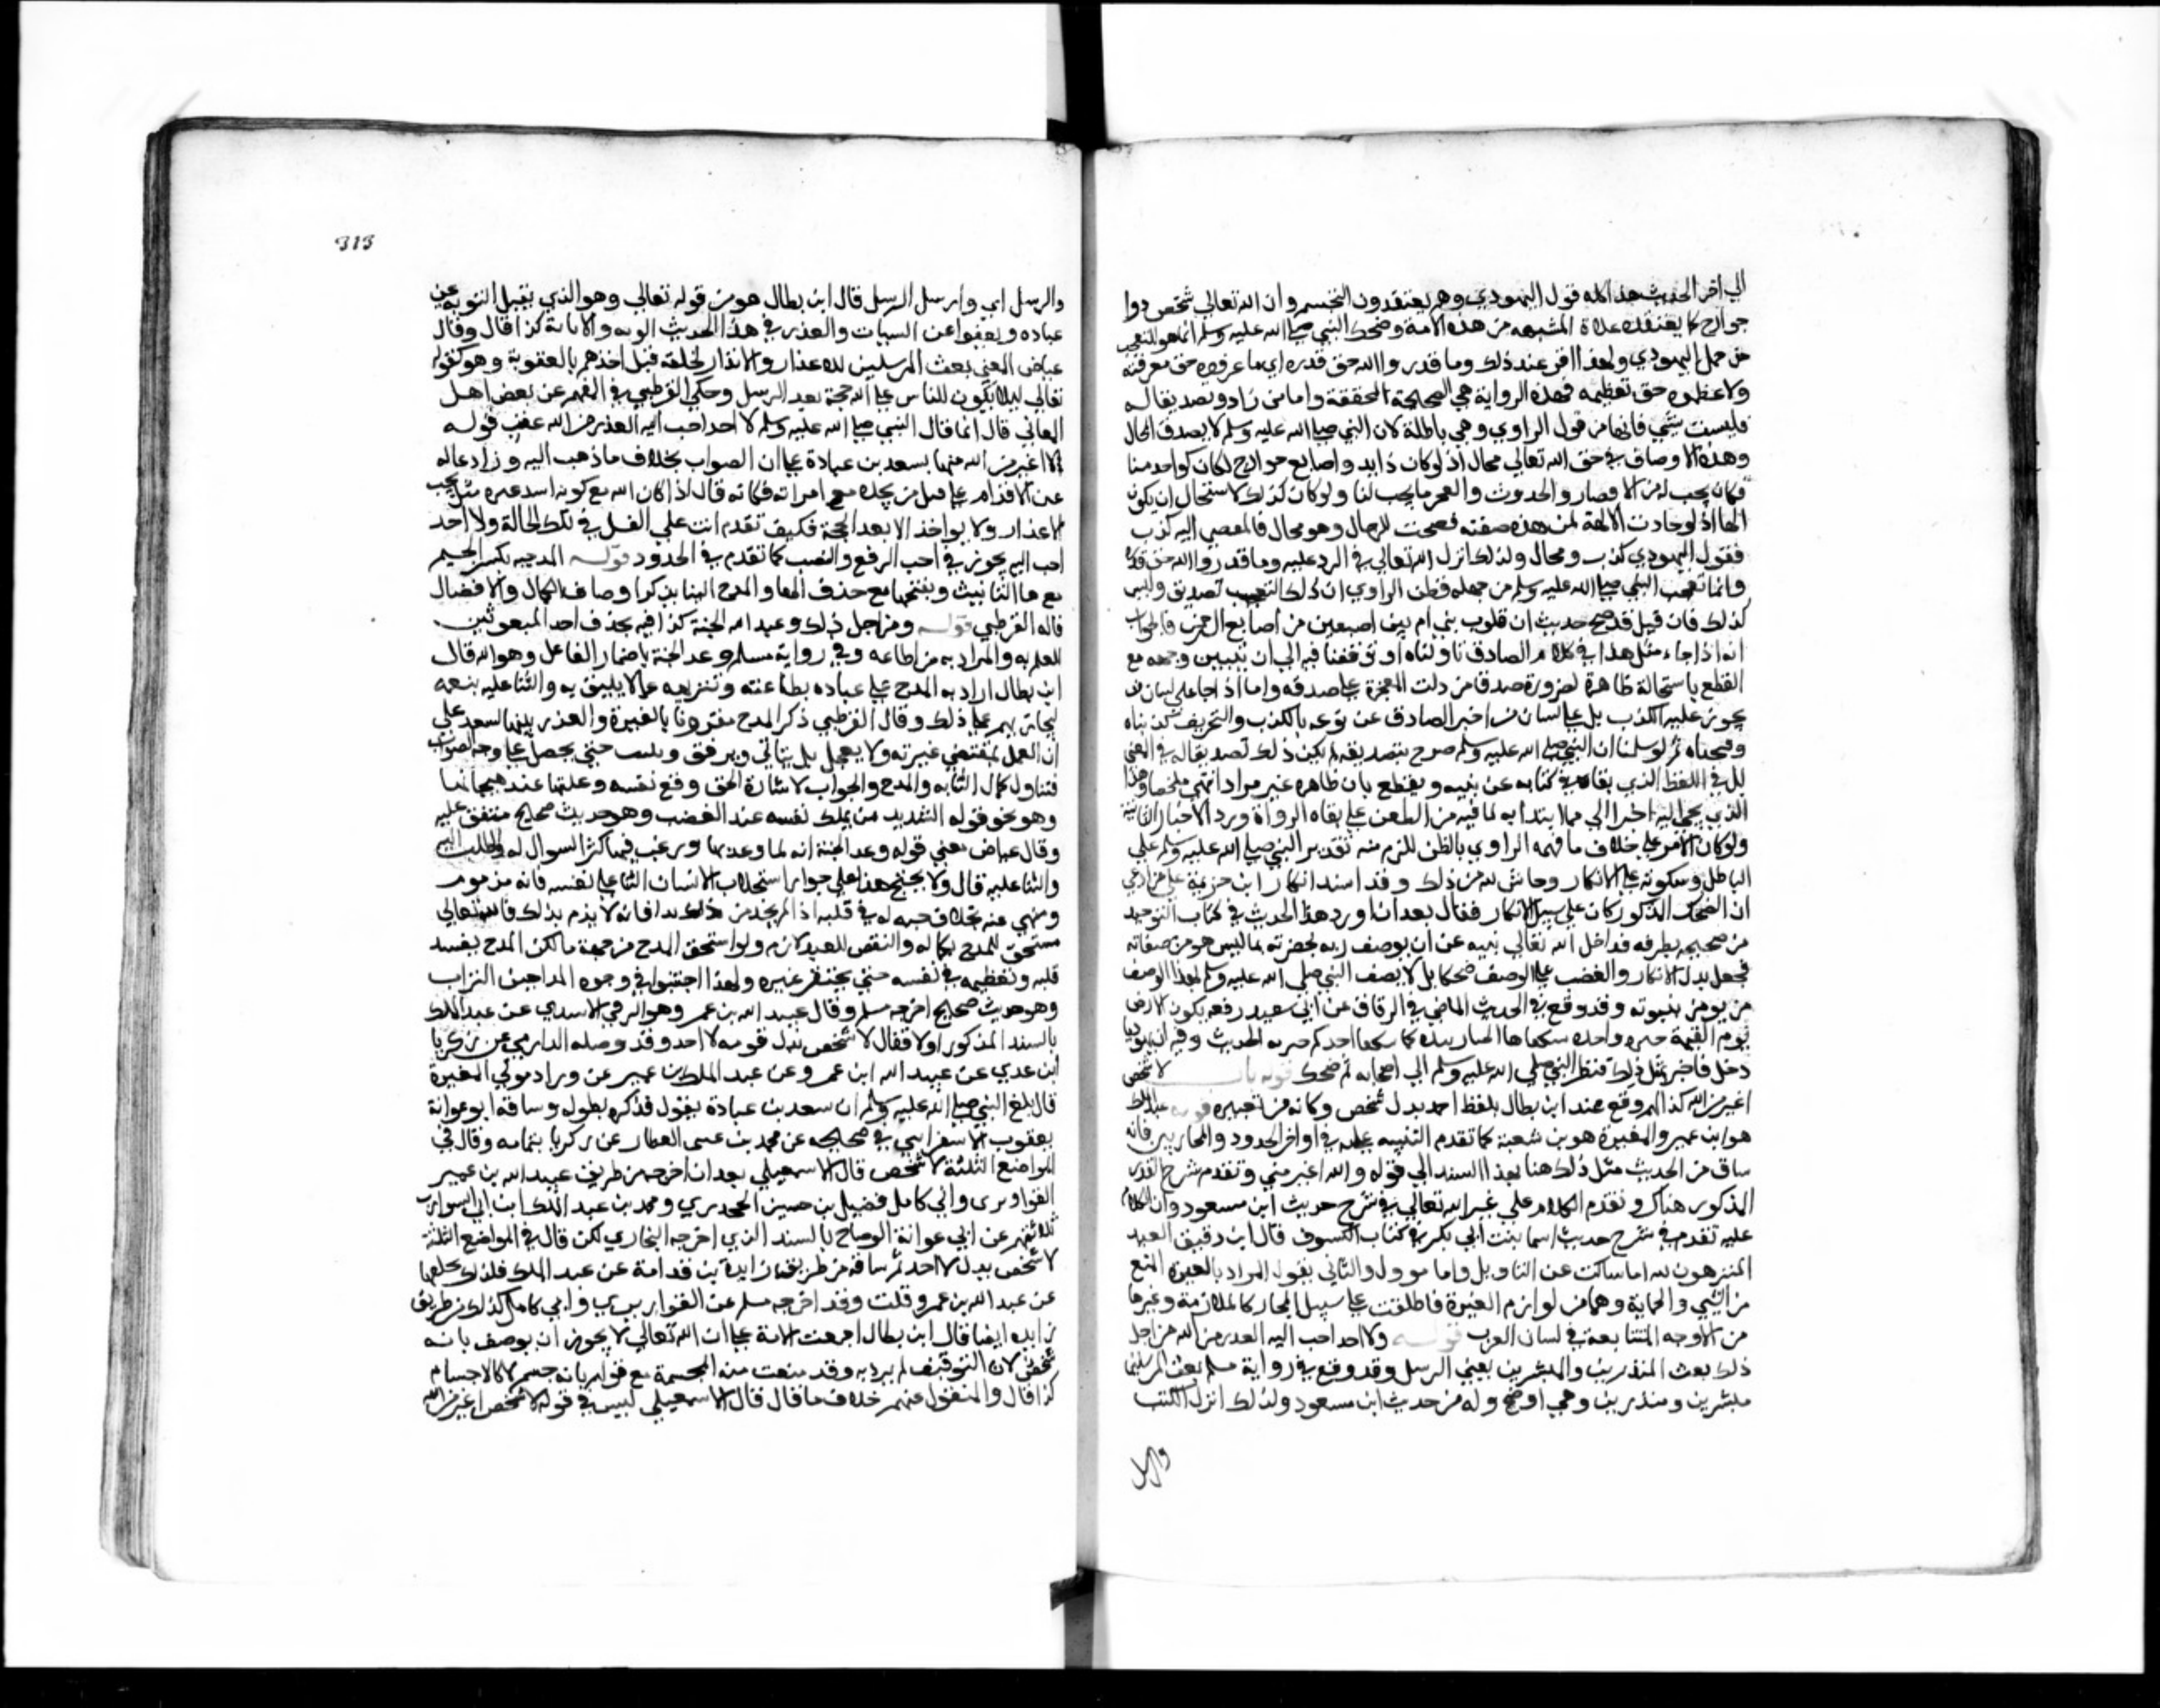 الي اخر الحديث هذا كله قول اليهودي وهم يعتقدون التجسيم وان الله تعالي شخص ذوا
جوارح كما يعتقده غلاة المشبهه من هذه الامة وضحك النبي صلي الله عليه وسلم انما هو للتعجب
من جهل اليهودي ولهذا قرا عند ذلك وما قدروا الله حق قدره اي ما عرفوه حق معرفته
ولا عظموه حق تعظيمه فهذه الرواية هي الصحيحة المحققة واما من زاد وتصديقا له
فليست بشي فانها من قول الراوي وهي باطلة لان النبي صلي الله عليه وسلم لا يصدق المحال
وهذه الاوصاف في حق الله تعالي محال اذ لو كان ذا يد واصابع جوارح لكان كواحد منا
فكان يجب له من الافتقار والحدوث والعجز ما يجب لنا ولو كان كذلك لاستحال ان يكون
الها اذ لو جازت الالهة لمن هذه صفته لصحت للدجال وهو محال فالمفضي اليه كذب
فقول اليهودي كذب ومحال ولذلك انزل الله تعالي في الرد عليه وما قدروا الله حق قدره
وانما تعجب النبي صلي الله عليه وسلم من جهله فظن الراوي ان ذلك التعجب تصديق وليس
كذلك فان قيل قد صح حديث ان قلوب بني ادم بين اصبعين من اصابع الرحمن فالجواب
انه اذا جاء مثل هذا في كلام الصادق تاولناه او توقفنا فيه الي ان يتبين وجهه مع
القطع باستحالة ظاهره لضرورة صدق من دلت المعجزة علي صدقه واما اذا جا علي لسان من
يجوز عليه الكذب بل علي لسان من اخبر الصادق عن نوعه بالكذب والتحريف كذبناه
وقبحناه ثم لو سلمنا ان النبي صلي الله عليه وسلم صرح بتصديقه لم يكن ذلك تصديقا له في المعني
بل في اللفظ الذي نقله من كتابه عن نبيه ويقطع بان ظاهره غير مراد انتهي ملخصا وهذا
الذي نحا اليه اخيرا اولي مما ابتدا به لما فيه من الطعن علي ثقاة الرواة ورد الاخبار الثابتة
ولو كان الامر علي خلاف ما فهمه الراوي بالظن للزم منه تقدير النبي صلي الله عليه وسلم علي
الباطل وسكوته علي الانكار وحاش لله من ذلك وقد اشتد انكار ابن خزيمة علي من ادعي
ان الضحك المذكور كان علي سبيل الانكار فقال بعد ان اورد هذا الحديث في كتاب التوحيد
من صحيحه بطرقه قد اجل الله تعالي نبيه عن ان يوصف ربه بحضرته بما ليس هو من صفاته
فيجعل بدل الانكار والغضب علي الوصف ضحكا بل لا يصف النبي صلي الله عليه وسلم بهذا الوصف
من يومن بنبوته وقد وقع في الحديث الماضي في الرقاق عن ابي سعيد رفعه تكون الارض
يوم القيمة خبزه واحده يتكفاها الجبار بيده كما يتكفا احدكم خبزته الحديث وفيه ان يهوديا
دخل فاخبر بمثل ذلك فنظر النبي صلي الله عليه وسلم الي اصحابه ثم ضحك قوله باب لا شخص
اغير من الله كذا لهم ووقع عند ابن بطال بلفظ احد بدل شخص وكانه من تغييره قوله عبد الملك
هو ابن عمير والمغيرة هو بن شعبة كما تقدم التنبيه عليه في اواخر الحدود والمحاربين فانه
ساق من الحديث مثل ذلك هنا بهذا السند الي قوله والله اغير مني وتقدم شرح القدر
المذكور هناك وتقدم الكلام علي غيرة الله تعالي في شرح حديث ابن مسعود وان الكلام
عليه تقدم في شرح حديث اسما بنت ابي بكر في كتاب الكسوف قال ابن دقيق العيد
المنزهون لله اما ساكت عن التاويل واما موول والثاني يقول المراد بالغيرة المنع
من الشي والحماية وهما من لوازم الغيرة فاطلقت علي سبيل المجاز كالملازمة وغيرها
من الاوجه الشائعة في لسان العرب قوله ولا احد احب اليه العذر من الله من اجل
ذلك بعث المنذرين والمبشرين يعني الرسل وقد وقع في رواية مسلم بعث المرسلين
مبشرين ومنذرين وهي اوضح وله من حديث ابن مسعود ولذلك انزل الكتب
والرسل
313
والرسل اي وارسل الرسل قال ابن بطال هو من قوله تعالي وهو الذي يقبل التوبة عن
عباده ويعفوا عن السيات والعذر في هذا الحديث التوبه والانابة كذا قال وقال
عياض المعني بعث المرسلين للاعذار والانذار لخلقه قبل اخذهم بالعقوبة وهو كقوله
تعالي ليلا يكون للناس علي الله حجة بعد الرسل وحكي القرطبي في المفهم عن بعض اهل
المعاني قال انما قال النبي صلي الله عليه وسلم لا احد احب اليه العذر من الله عقب قوله
لا احد اغير من الله منبها لسعد بن عبادة علي ان الصواب بخلاف ما ذهب اليه ورادعا له
عن الاقدام علي قتل من يجده مع امراته فكانه قال اذا كان الله مع كونه اشد غيره منك يحب
الاعذار ولا يواخذ الا بعد الحجة فكيف تقدم انت علي القتل في تلك الحالة ولا احد
احب اليه يجوز في احب الرفع والنصب كما تقدم في الحدود قوله المدحه بكسر الميم
مع ها التانيث وبفتحها مع حذف الها والمدح الثنا بذكر اوصاف الكمال والافضال
قاله القرطبي قوله ومن اجل ذلك وعد الله الجنة كذا فيه بحذف احد المفعولين
للعلم به والمراد به من اطاعه وفي رواية مسلم وعد الجنة باضمار الفاعل وهو الله قال
ابن بطال اراد به المدح علي عباده بطاعته وتنزيهه عما لا يليق به والثنا عليه بنعمه
ليجازيهم علي ذلك وقال القرطبي ذكر المدح مقرونا بالغيرة والعذر تنبيها لسعد علي
ان لا يعمل بمقتضي غيرته ولا يعجل بل يتاني ويرفق ويتثبت حتي يحصل علي وجه الصواب
فيتناول كمال الثنا به والمدح والثواب لايثاره الحق وقمع نفسه وغلبتها عند هيجانها
وهو نحو قوله الشديد من يملك نفسه عند الغضب وهو حديث صحيح متفق عليه
وقال عياض معني قوله وعد الجنة انه لما وعد بها ورغب فيها كثر السوال له والطلب اليه
والثنا عليه قال ولا يحتج بهذا علي جواز استجلاب الانسان الثنا علي نفسه فانه مذموم
ومنهي عنه بخلاف حبه له في قلبه اذا لم يجد من ذلك بدا فانه لا يذم بذلك فالله تعالي
مستحق للمدح بكماله والنقص للعبد لازم ولو استحق المدح من جهة ما لكن المدح يفسد
قلبه ويعظمه في نفسه حتي يحتقر غيره ولهذا احثوا في وجوه المداحين التراب
وهو حديث صحيح اخرجه مسلم وقال عبيد الله بن عمر وهو الرقي الاسدي عن عبد الملك
بالسند المذكور اولا فقال لا شخص بدل قوله لا احد وقد وصله الدارمي عن زكريا
ابن عدي عن عبيد الله ابن عمر وعن عبد الملك بن عمير عن وراد مولي المغيرة
قال بلغ النبي صلي الله عليه وسلم ان سعد بن عبادة يقول فذكره بطوله وساقه ابو عوانة
يعقوب الاسفرايني في صحيحه عن محمد بن عيسي العطار عن زكريا بتمامه وقال في
المواضع الثلثة لا شخص قال الاسمعيلي بعد ان اخرجه من طريق عبيد الله بن عمير
القواريري وابي كامل فضيل بن حسين الجحدري ومحمد بن عبد الملك ابن ابي الشوارب
ثلاثتهم عن ابي عوانة الوضاح بالسند الذي اخرجه البخاري لكن قال في المواضع الثلثة
لا شخص بدل لا احد ثم ساقه من طريق زايدة بن قدامة عن عبد الملك كذلك
عن عبد الله بن عمرو قلت وقد اخرجه مسلم عن القواريري وابي كامل كذلك من طريق
زايده ايضا قال ابن بطال اجمعت الامة علي ان الله تعالي لا يجوز ان يوصف بانه
شخص لان التوقيف لم يرد به وقد منعت منه المجسمة مع قولهم بانه جسم لا كالاجسام
كذا قال والمنقول عنهم خلاف ما قال قال الاسمعيلي ليس في قوله لا شخص اغير من الله